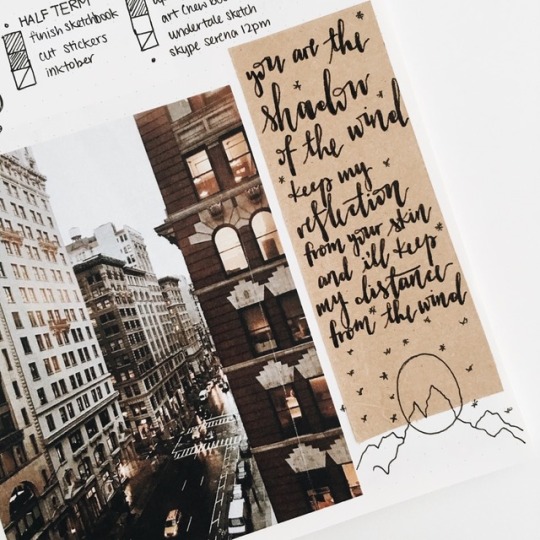 HALF TERM
finish sketchbook
cut stickers
inktober
art (new
undertale sketch
skype serena 12pm
you are the
shadow
of the wind
keep my
reflection
from your skin
and ill keep
my distance
from the wind